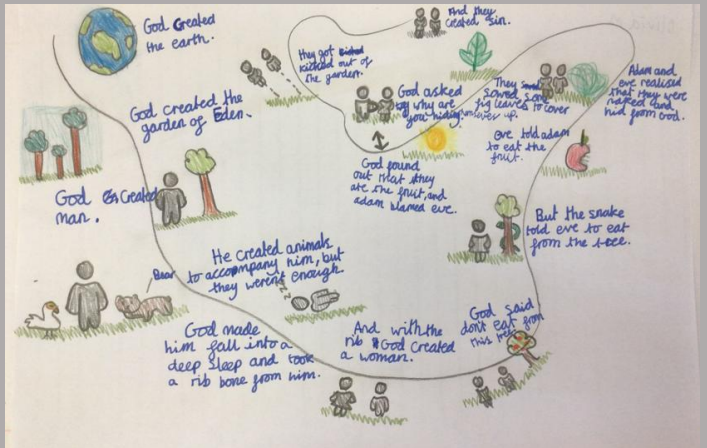 God Created
the earth.
God created the
garden of Eden.
God Created
man.
Bear
He created animals
to accompany him, but
they weren't enough.
zzz
God made
him fall into a
deep sleep and took
a rib bone from him.
And with the
rib God created
a woman.
God said
don't eat from
this tree
But the snake
told eve to eat
from the tree.
eve told adam
to eat the
fruit.
Adam and
eve realised
that they were
naked and
hid from God.
They
sowed some
fig leaves to cover
up.
God asked
why are
you hiding
God found
out that they
ate the fruit, and
adam blamed eve.
they got
kicked out of
the garden.
And they
created sin.